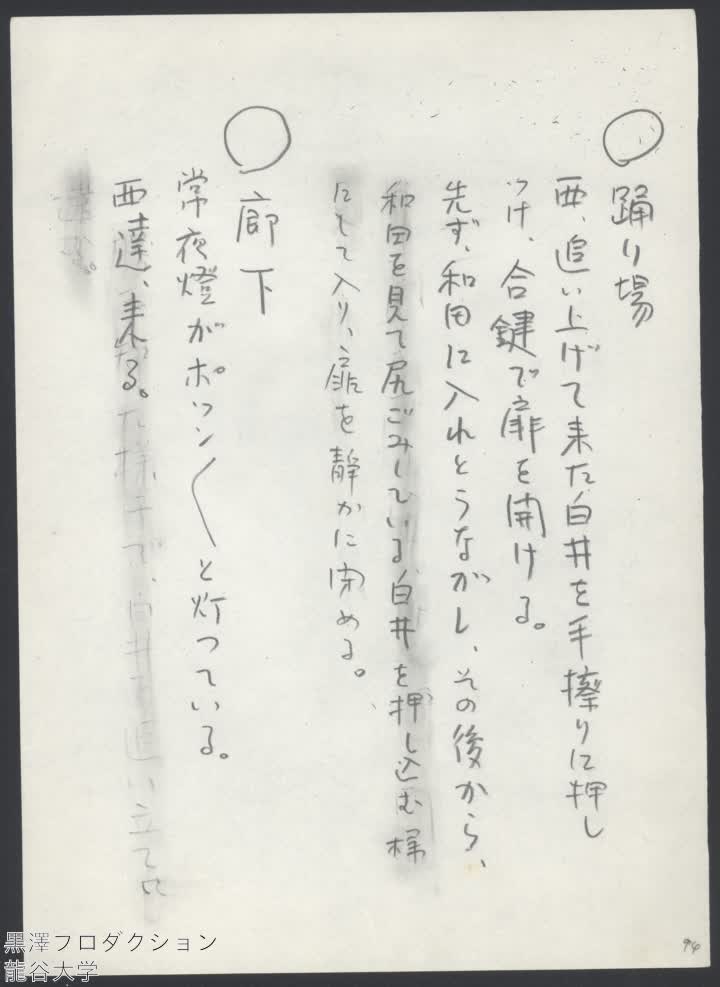 ○ 踊り場
西、追い上げて来た白井を手擦りに押し
つけ、合鍵で扉を開ける。
先ず、和田に入れとうながし、その後から、
和田を見て尻ごみしている白井を押し込む様
にして入り、扉を静かに閉める。
○ 廊下
常夜燈がポツン〱と灯っている。
西達、来る。
94
黒澤プロダクション
龍谷大学